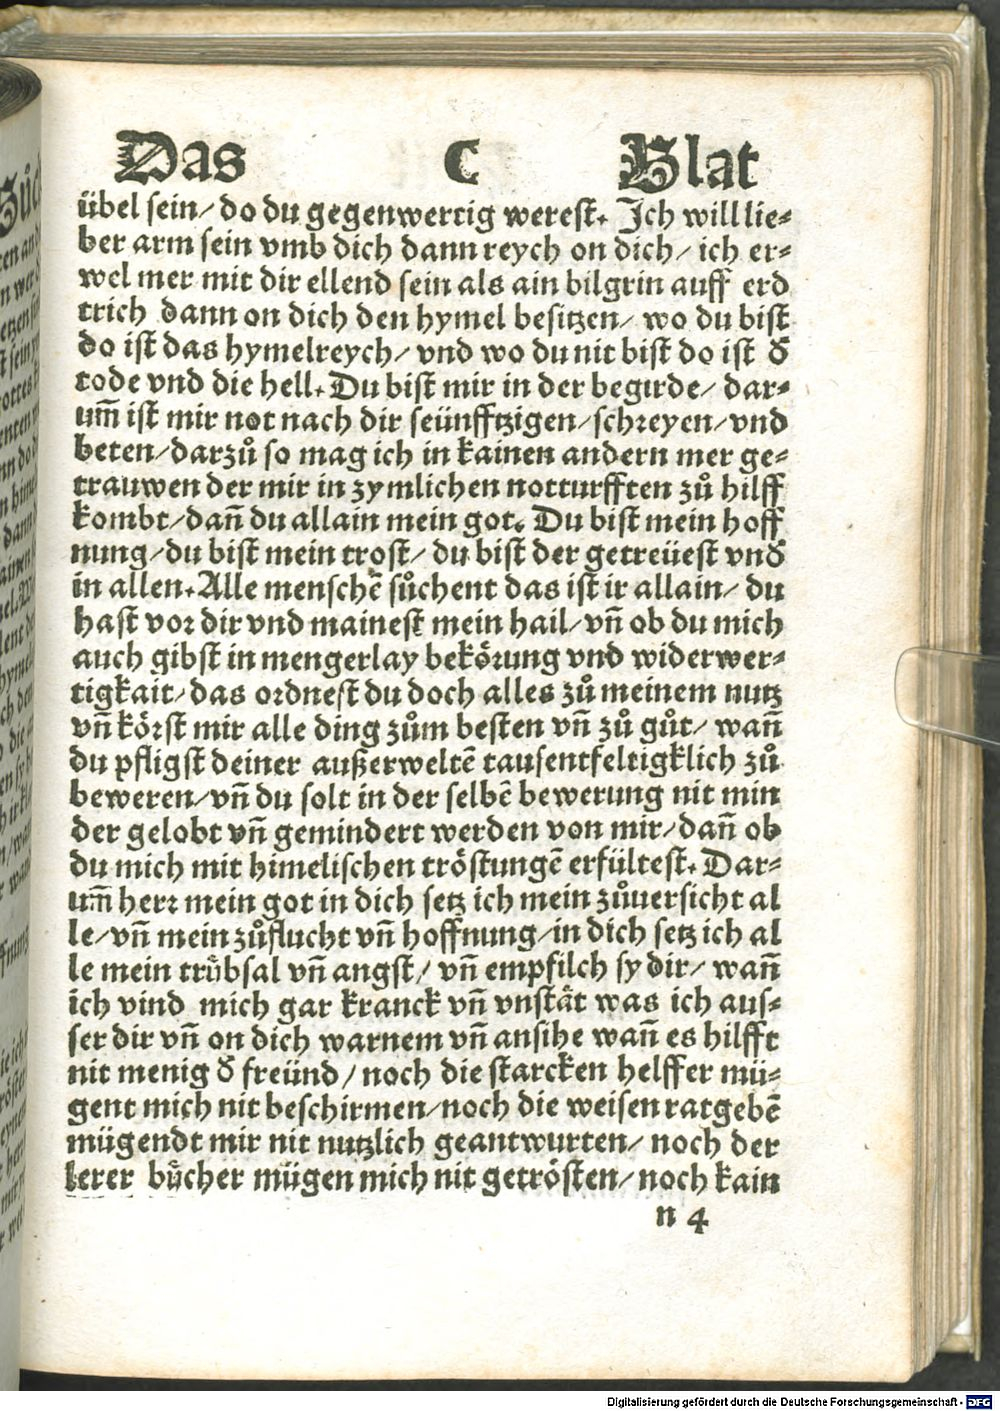 Das C Blat
übel sein/ do du gegenwertig werest. Ich will lie⸗
ber arm sein vmb dich dann reych on dich/ ich er⸗
wel mer mit dir ellend sein als ain bilgrin auff erd
trich dann on dich den hymel besitzen/ wo du bist
do ist das hymelreych/ vnd wo du nit bist do ist d̕
tode vnd die hell. Du bist mir in der begirde/ dar⸗
um̃ ist mir not nach dir seünfftzigen/ schreyen/ vnd
beten/ darzuͦ so mag ich in kainen andern mer ge⸗
trauwen der mir in zymlichen notturfften zuͦ hilff
kombt/ dañ du allain mein got. Du bist mein hoff
nung/ du bist mein trost/ du bist der getreüest vnd̕
in allen. Alle menschẽ suͦchent das ist ir allain/ du
hast vor dir vnd mainest mein hail/ vñ ob du mich
auch gibst in mengerlay bekörung vnd widerwer⸗
tigkait/ das ordnest du doch alles zuͦ meinem nutz
vñ körst mir alle ding zuͦm besten vñ zuͦ guͦt/ wañ
du pfligst deiner außerweltẽ tausentfeltigklich zuͦ
beweren/ vñ du solt in der selbẽ bewerung nit min
der gelobt vñ gemindert werden von mir/ dañ ob
du mich mit himelischen tröstungẽ erfültest. Dar⸗
um̃ herr mein got in dich setz ich mein zuͦuersicht al
le/ vñ mein zuͦflucht vñ hoffnung/ in dich setz ich al
le mein trübsal vñ angst/ vñ empfilch sy dir/ wañ
ich vind mich gar kranck vñ vnstät was ich aus⸗
ser dir vñ on dich warnem vñ ansihe wañ es hilfft
nit menig d̕ freünd/ noch die starcken helffer mü⸗
gent mich nit beschirmen/ noch die weisen ratgebẽ
mügendt mir nit nutzlich geantwurten/ noch der
lerer buͤcher mügen mich nit getrösten/ noch kain
n 4
Digitalisierung gefördert durch die Deutsche Forschungsgemeinschaft - DFG